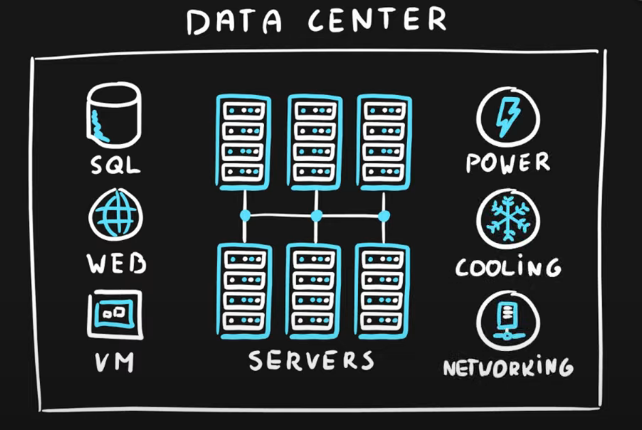 DATA CENTER
SQL
WEB
VM
SERVERS
POWER
COOLING
NETWORKING